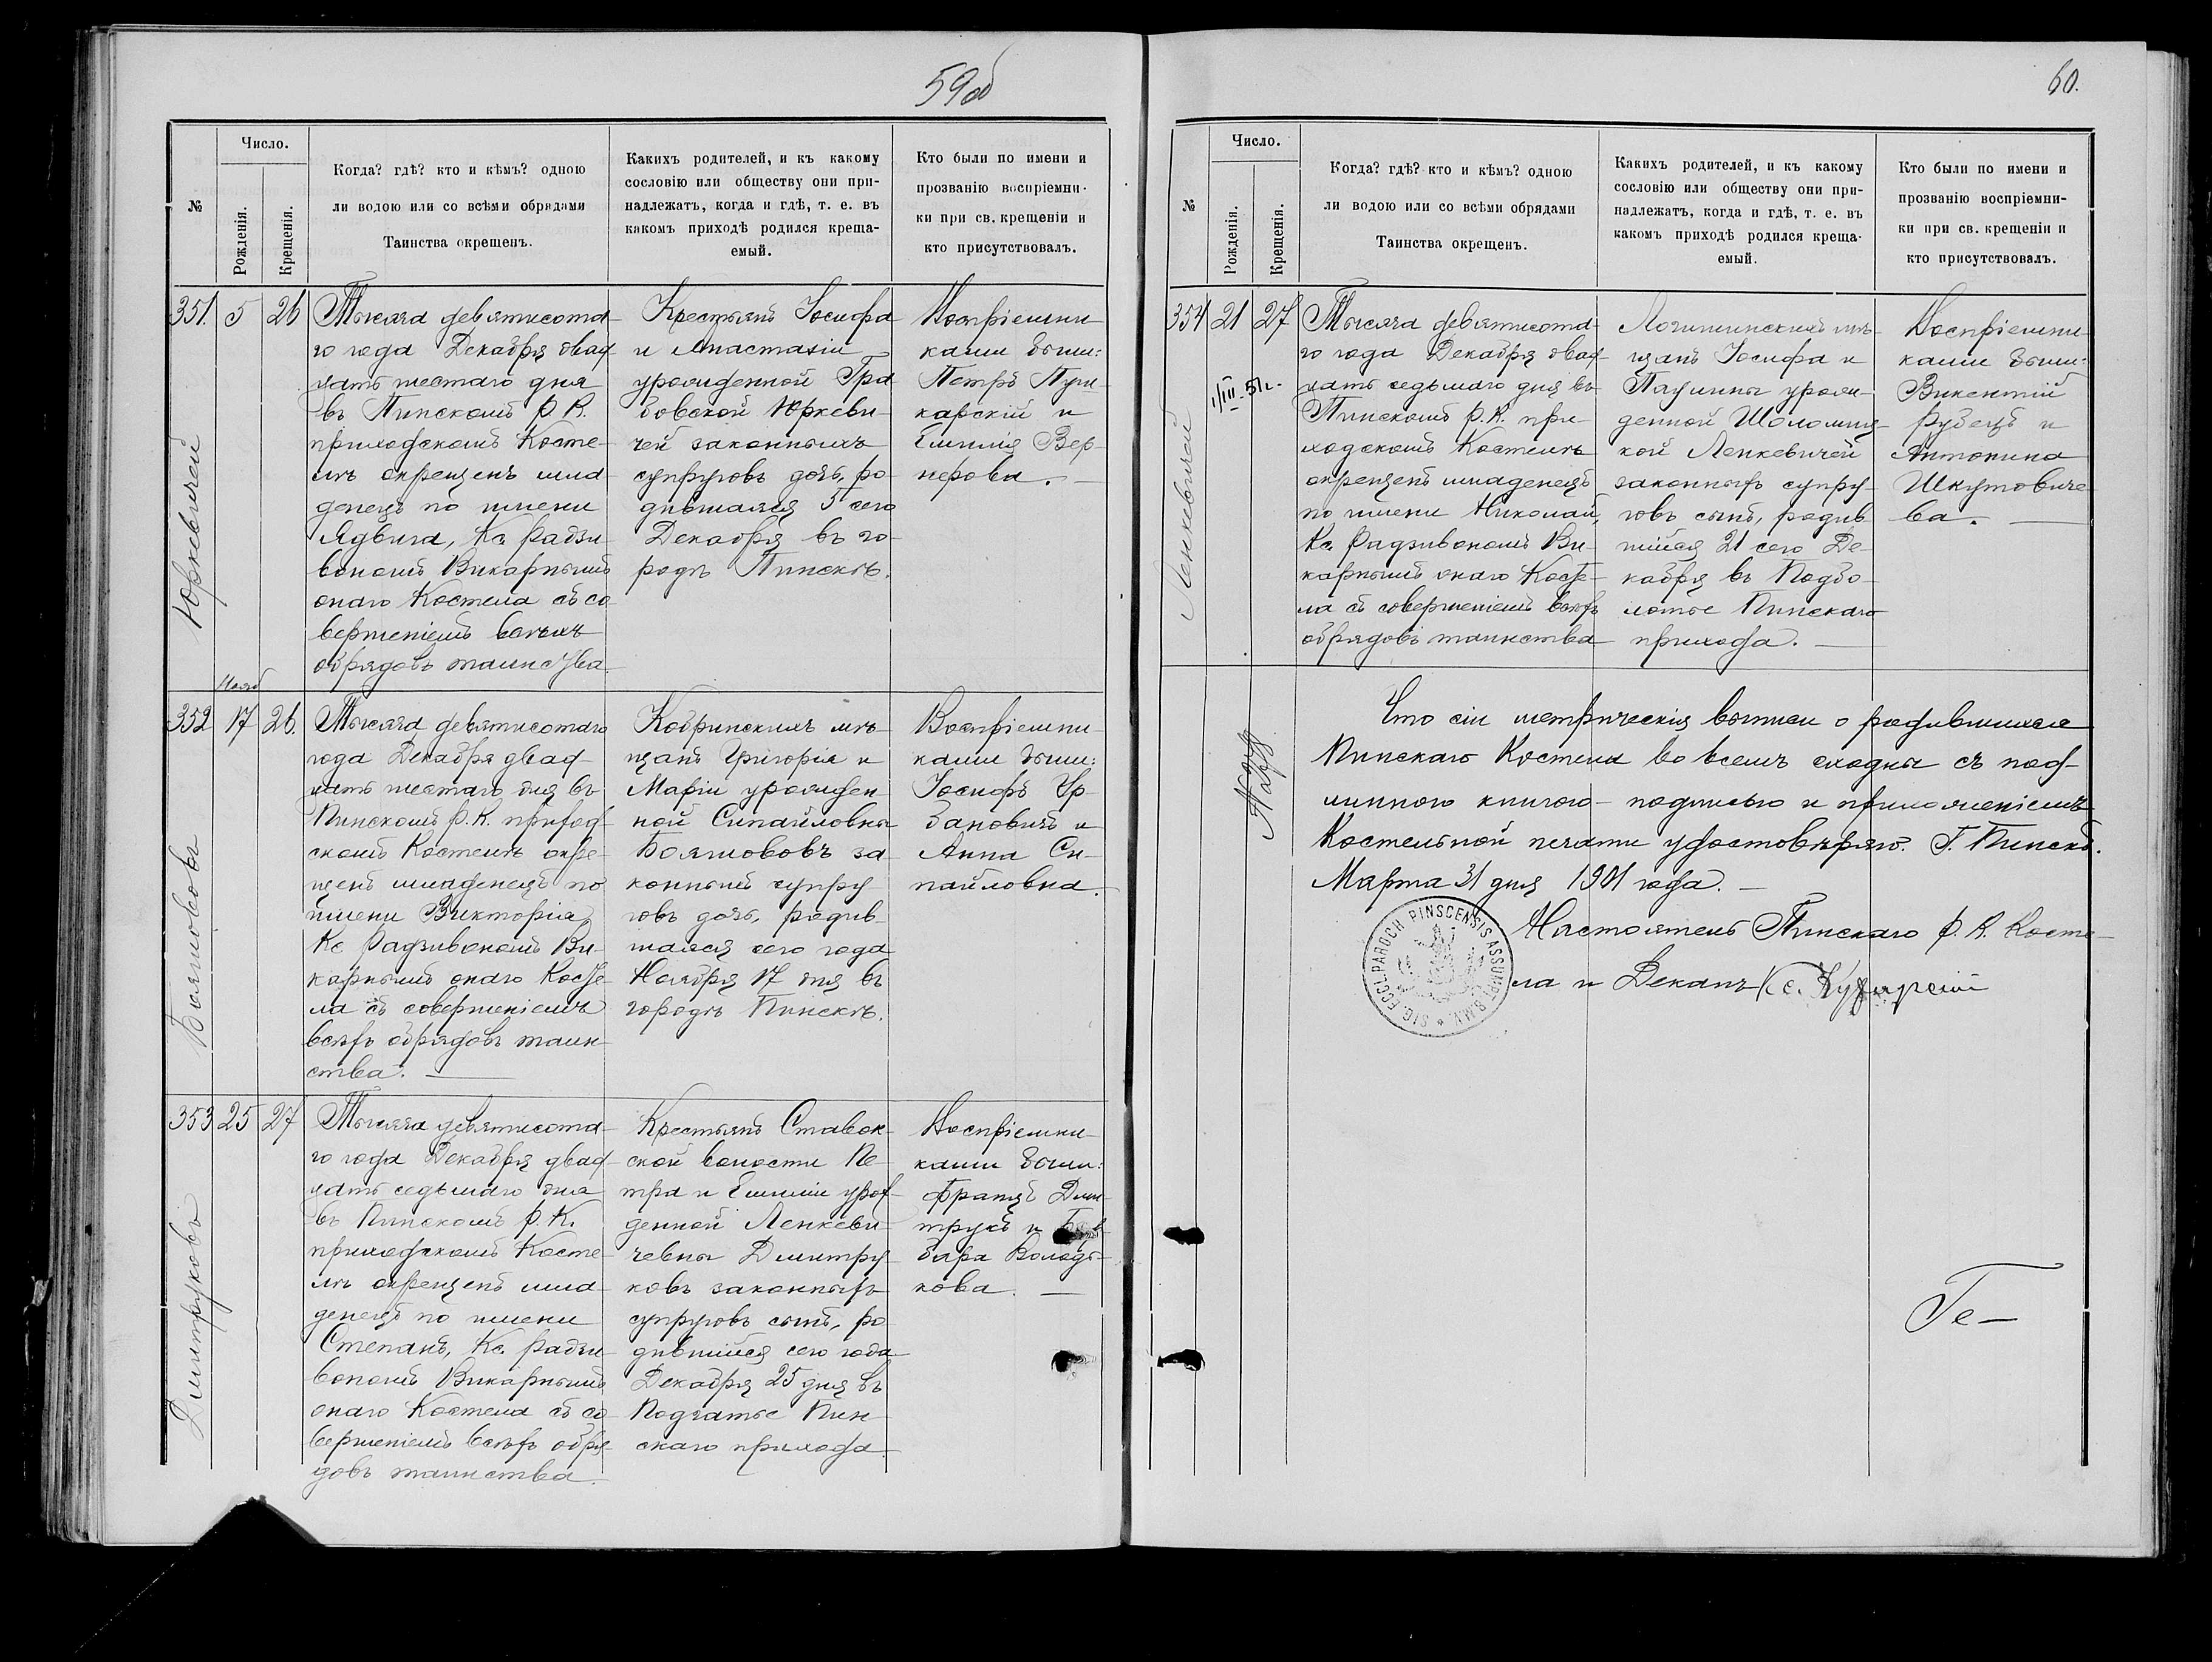 59об
№
Число.
Рожденія.
Крещенія.
Когда? гдѣ? кто и кѣмъ? одною
ли водою или со всѣми обрядами
Таинства окрещенъ.
Какихъ родителей, и къ какому
сословію или обществу они при-
надлежатъ, когда и гдѣ, т. е. въ
какомъ приходѣ родился креща-
емый.
Кто были по имени и
прозванію воспріемни-
ки при св. крещеніи и
кто присутствовалъ.
351. 5 26
Юркевичей
Тысяча девятисота-
го года Декабря двад-
цать шестаго дня
въ Пинскомъ Р. К.
приходскомъ Косте-
лѣ окрещенъ мла-
денецъ по имени
Ядвига, Кс. Радзи-
вономъ Викарнымъ
онаго Костела съ со-
вершеніемъ всѣхъ
обрядовъ таинства.
Крестьянъ Іосифа
и Анастазіи
урожденной Гра-
бовской Юркеви-
чей законныхъ
супруговъ дочь, ро-
дившаяся 5 сего
Декабря въ го-
родѣ Пинскѣ.
Воспріемни-
ками были:
Петръ Пуш-
карскій и
Емилія Вер-
нерова.
Нояб
352 17 26.
Бояшововъ
Тысяча девятисотаго
года Декабря двад-
цать шестаго дня въ
Пинскомъ Р. К. приход-
скомъ Костелѣ окре-
щенъ младенецъ по
имени Викторія,
Кс Радзивономъ Ви-
карнымъ онаго Косте-
ла съ совершеніемъ
всѣхъ обрядовъ таин-
ства.
Кобринскихъ мѣ-
щанъ Григорія и
Маріи урожден-
ной Сипайловны
Бояшововъ за-
конныхъ супру-
говъ дочь, родив-
шаяся сего года
Ноября 17 дня въ
городѣ Пинскѣ.
Воспріемни-
ками были:
Іосифъ Ур-
бановичъ и
Анна Си-
пайловна.
353 25 27
Дмитруковъ
Тысяча девятисота-
го года Декабря двад-
цать седьмаго дня
въ Пинскомъ Р. К.
приходскомъ Косте-
лѣ окрещенъ мла-
денецъ по имени
Степанъ, Кс. Радзи-
вономъ Викарнымъ
онаго Костела съ со-
вершеніемъ всѣхъ обря-
довъ таинства.
Крестьянъ Ставок-
ской волости Пе-
тра и Емиліи урож-
денной Ленкеви-
чевны Дмитру-
ковъ законныхъ
супруговъ сынъ, ро-
дившійся сего года
Декабря 25 дня въ
Подгатье Пин-
скаго прихода.
Воспріемни-
ками были:
Францъ Дми-
трукъ и
бара Володь-
кова.
60.
№
Число.
Рожденія.
Крещенія.
Когда? гдѣ? кто и кѣмъ? одною
ли водою или со всѣми обрядами
Таинства окрещенъ.
Какихъ родителей, и къ какому
сословію или обществу они при-
надлежатъ, когда и гдѣ, т. е. въ
какомъ приходѣ родился креща-
емый.
Кто были по имени и
прозванію воспріемни-
ки при св. крещеніи и
кто присутствовалъ.
354 21 27
1/III-51г.
Ленкевичей
Тысяча девятисота-
го года Декабря двад-
цать седьмаго дня въ
Пинскомъ Р. К. при-
ходскомъ Костелѣ
окрещенъ младенецъ
по имени Николай,
Кс. Радзивономъ Ви-
карнымъ онаго Косте-
ла съ совершеніемъ всѣхъ
обрядовъ таинства
Логишинскихъ мѣ-
щанъ Іосифа и
Паулины урож-
денной Шоломиц-
кой Ленкевичей
законныхъ супру-
говъ сынъ, родив-
шійся 21 сего Де-
кабря въ Подбо-
лотье Пинскаго
прихода.
Воспріемни-
ками были:
Викентій
Рубецъ и
Антонина
Шкутовиче-
ва.
Что сіи метрическія выписи о родившихся
Пинскаго Костела во всемъ сходны съ под-
линною книгою - подписью и приложеніемъ
Костельной печати удостовѣряю. Г. Пинскъ.
Марта 31 дня 1901 года.
Настоятель Пинскаго Р. К. Косте-
ла и Деканъ Кс.
SIG. ECCL. PAROCH PINSCENSIS ASSUMPT. B.M.V.